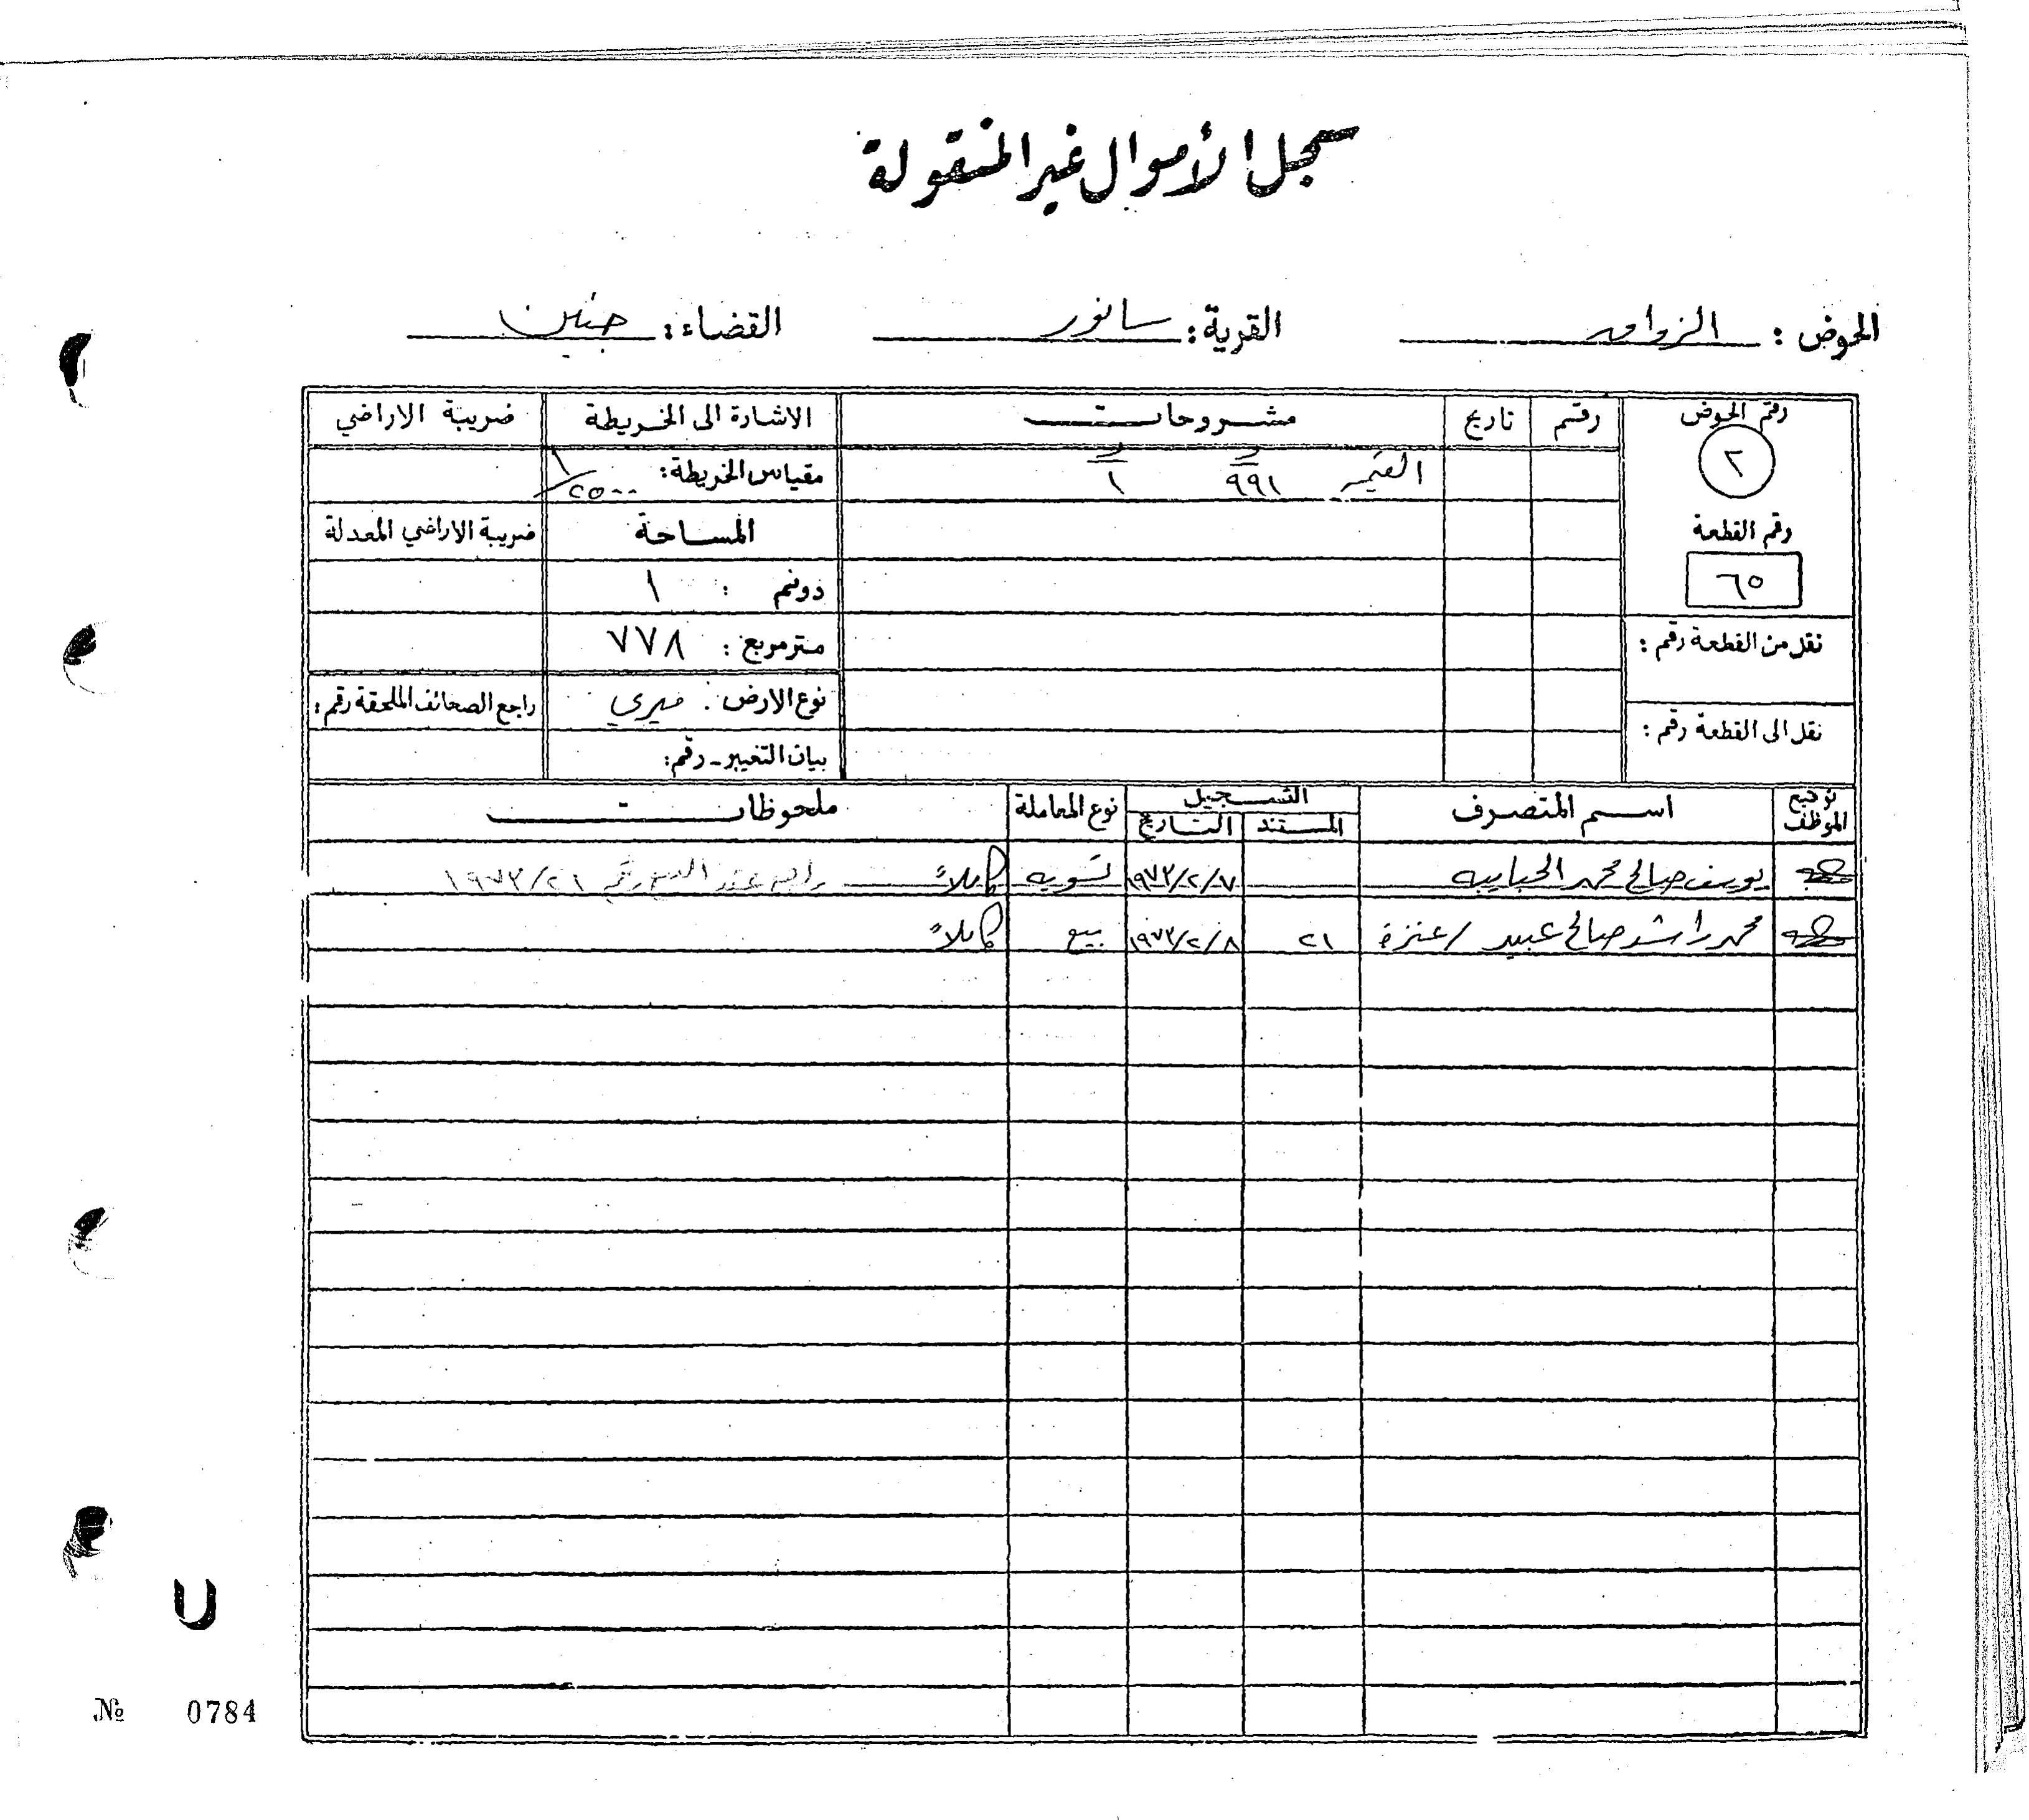 سجل الأموال غير المنقولة
الحوض : القرية : سانور القضاء : جنين
رقم الحوض رقم تاريخ مشروحات الاشارة الى الخريطة ضريبة الاراضي
٢ ٩٩١ ١ مقياس الخريطة : ١/٢٥٠٠
رقم القطعة المساحة ضريبة الاراضي المعدلة
٦٥ دونم : ١
نقل من القطعة رقم : متر مربع : ٧٧٨
نوع الارض : ميري راجع الصحائف الملحقة رقم :
نقل الى القطعة رقم : بيان التغيير - رقم :
توقيع الموظف اسم المتصرف التسجيل نوع المعاملة ملحوظات
المستند التاريخ
يوسف صالح محمد الحبايبه ١٩٧٣/٢/٧ تسويه كاملاً راجع عقد البيع رقم ١٩٧٣/٢١
محمد راشد صالح عبيد / عنزة ٢١ ١٩٧٣/٢/٨ بيع كاملاً
№ 0784